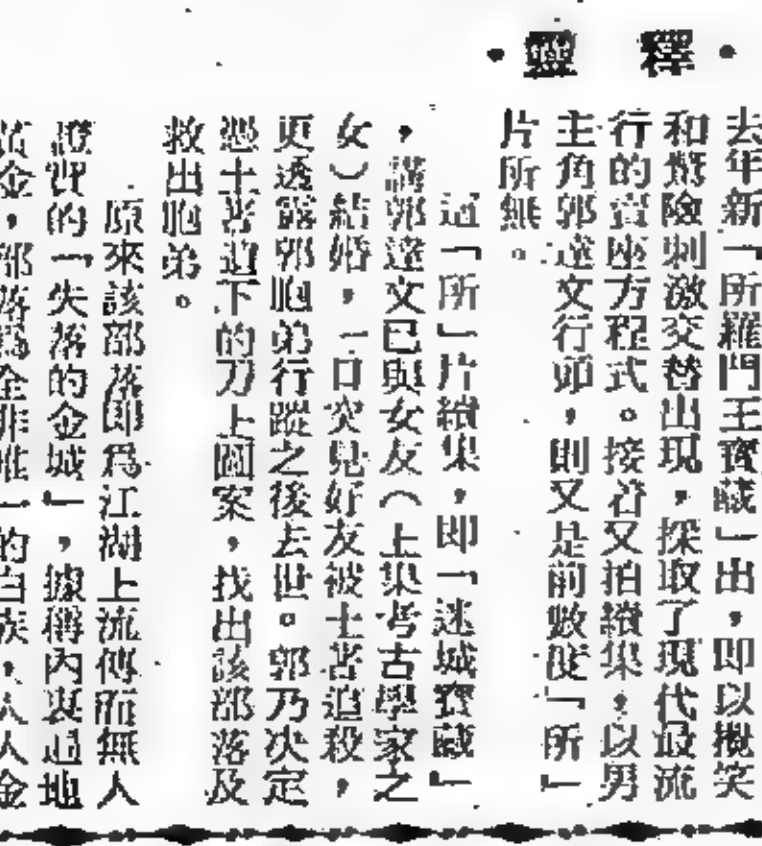 釋
去年新「所羅門王寶藏」出,即以攪笑
和驚險刺激交替出現,採取了現代最流
行的賣座方程式。接着又拍續集,以男
主角郭達文行頭,則又是前數從「所」
片所無。
這「所」片續集,即「迷城寶藏」
,講郭達文已與女友(上集考古學家之
女)結婚,一日突見好友被土著追殺,
更透露郭胞弟行蹤之後去世。郭乃決定
憑土著遺下的刀上圖案,找出該部落及
救出胞弟。
原來該部落即爲江湖上流傳而無人
證實的「失落的金城」,據稱內裏遍地
黃金,部落爲全非唯一的白族,人人金